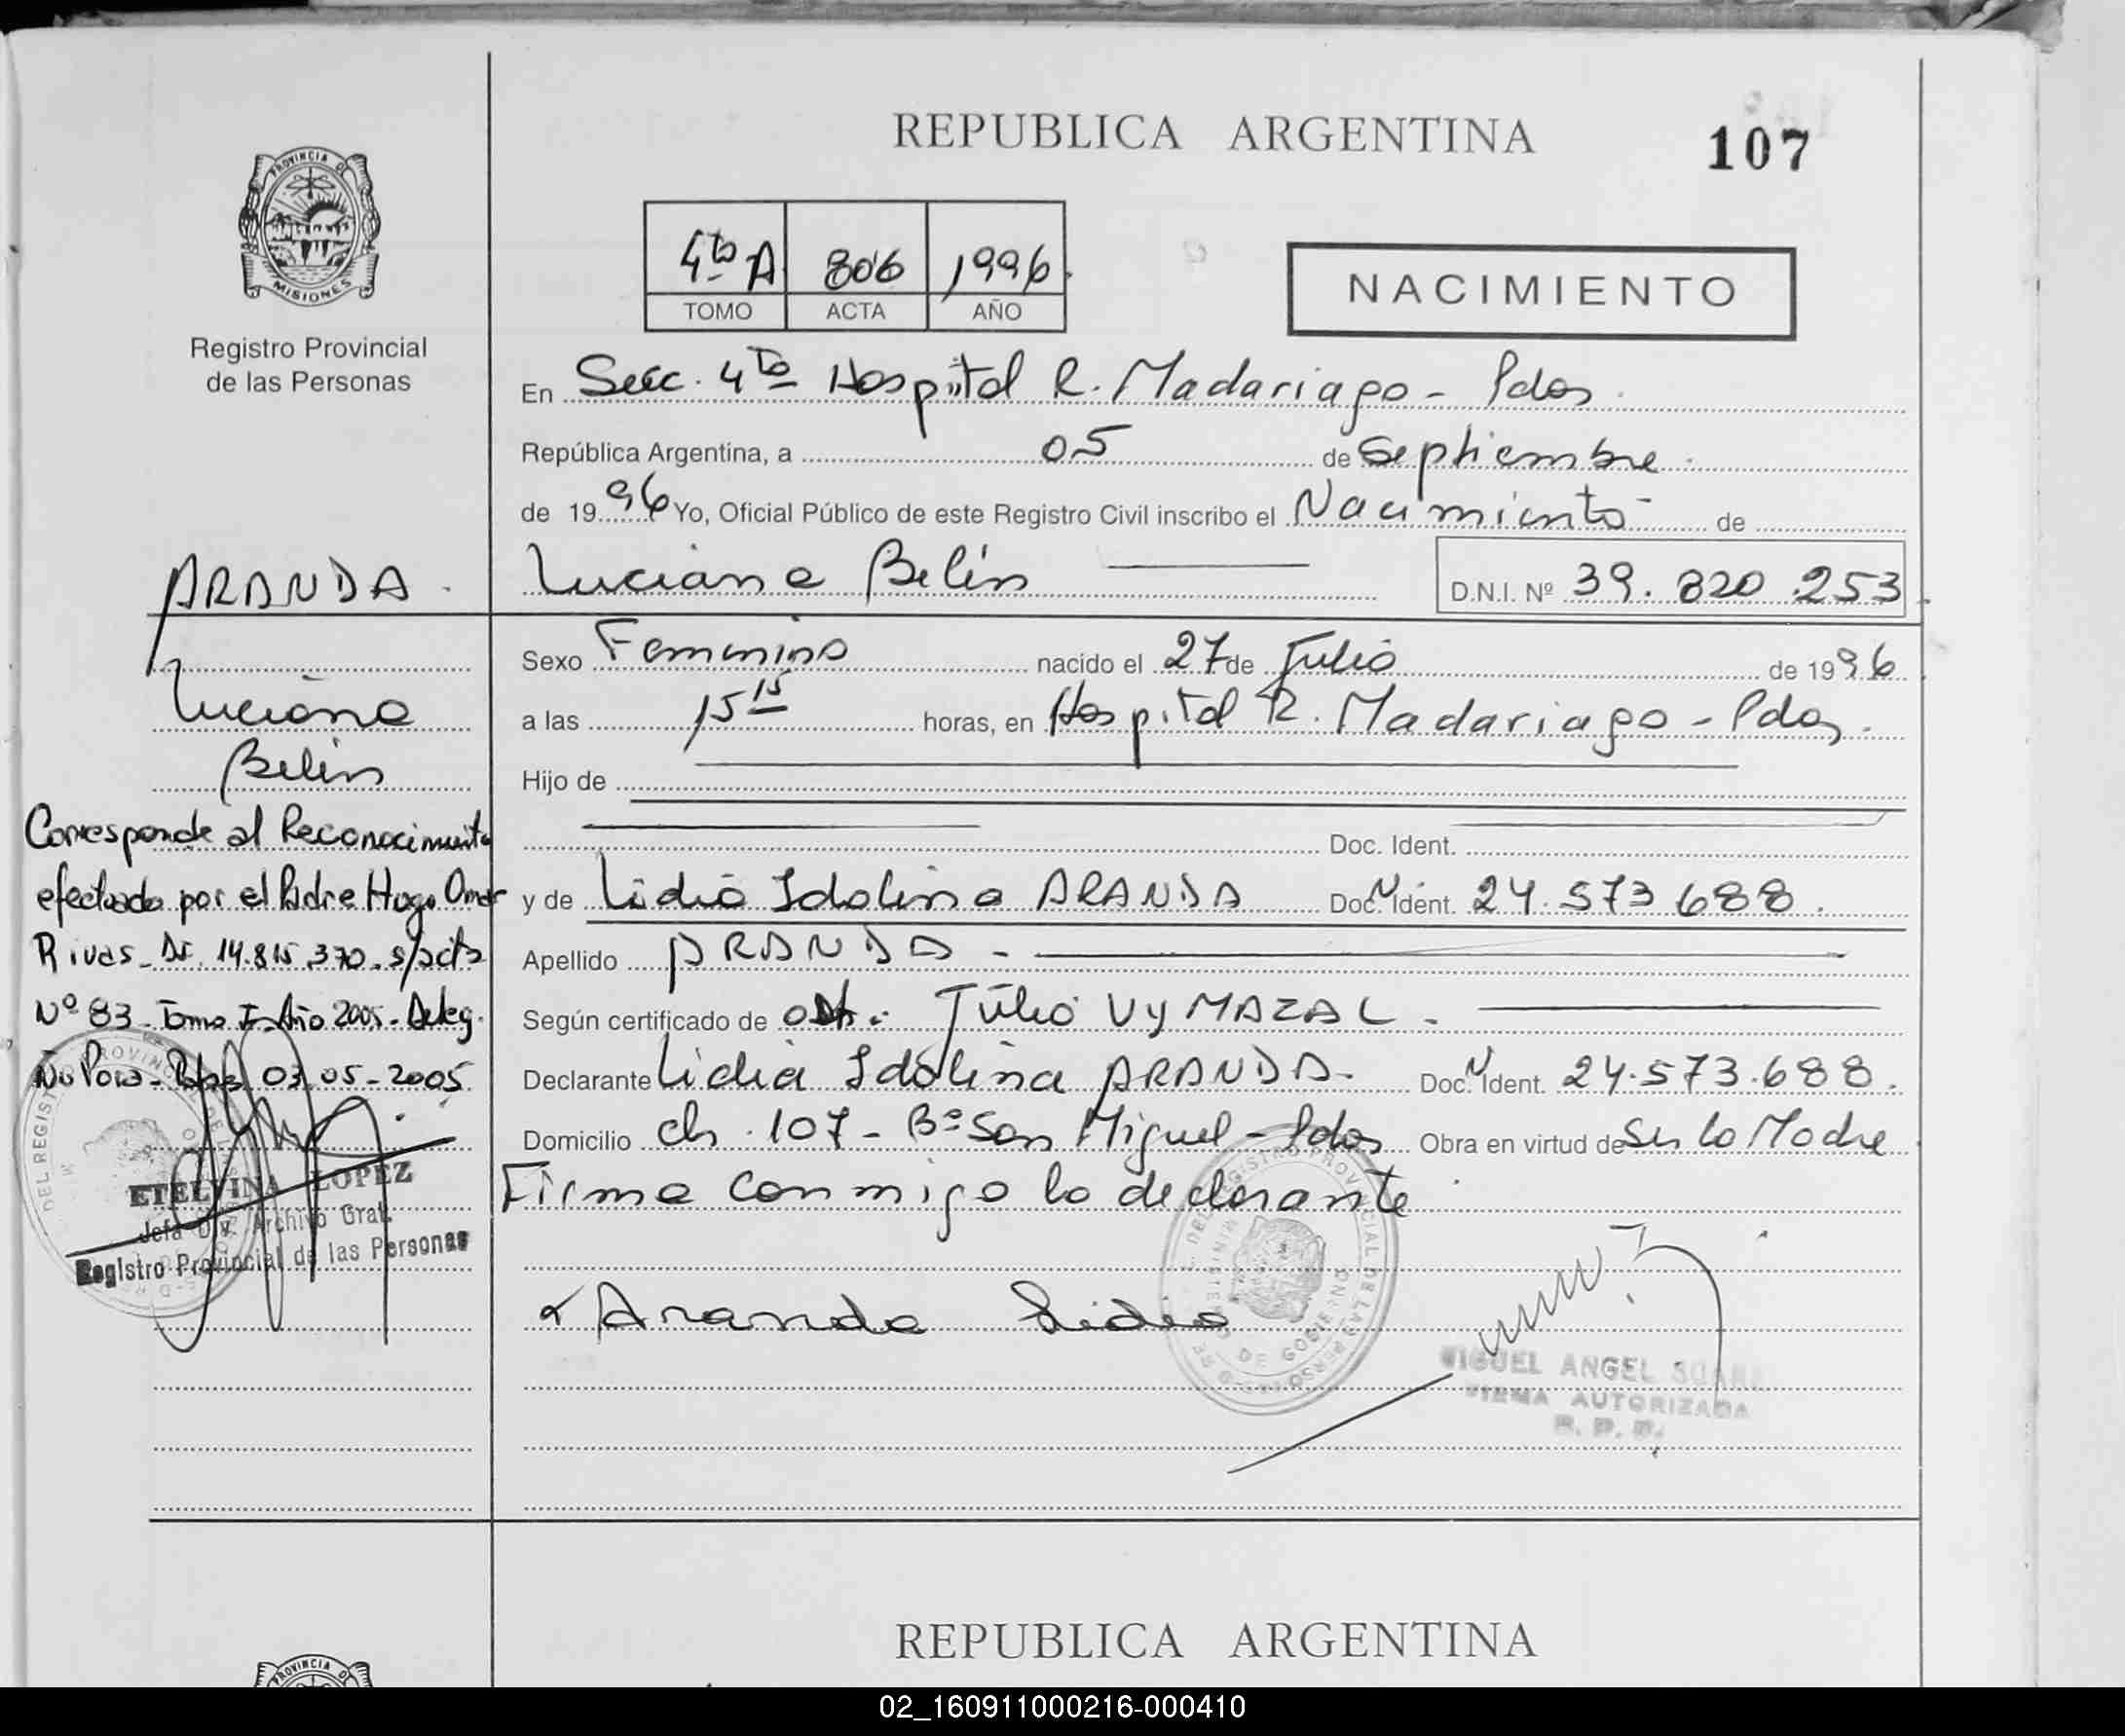 REPUBLICA ARGENTINA
107
PROVINCIA DE
MISIONES
Registro Provincial
de las Personas
4ta A 806 1996
TOMO ACTA AÑO
NACIMIENTO
En Secc. 4ta Hospital R. Madariaga - Pdas.
República Argentina, a 05 de Septiembre
de 1996 Yo, Oficial Público de este Registro Civil inscribo el Nacimiento de
Luciana Belén D.N.I. Nº 39.820.253
Sexo Femenino nacido el 27 de Julio de 1996
a las 15 15 horas, en Hospital R. Madariaga - Pdas.
Hijo de
Doc. Ident.
y de Lidia Idolina ARANDA Doc. Ident. 24.573.688.
Apellido ARANDA -
Según certificado de Julio VYMAZAL -
Declarante Lidia Idolina ARANDA - Doc. Ident. 24.573.688.
Domicilio ch. 107 - Bº San Miguel - Pdas Obra en virtud de Ser la Madre
Firma conmigo la declarante
Aranda Lidia
MIGUEL ANGEL
FIRMA AUTORIZADA
ARANDA.
Luciana
Belén
Corresponde al Reconocimiento
efectuado por el Padre Hugo Omar
Rivas - 14.815.370. s/acta
Nº 83 - Tomo I - Año 2005 - Deleg.
Ñu Pora - 03-05-2005
ETELVINA LOPEZ
Jefa Div. Archivo Gral.
Registro Provincial de las Personas
REPUBLICA ARGENTINA
PROVINCIA DE
02_160911000216-000410